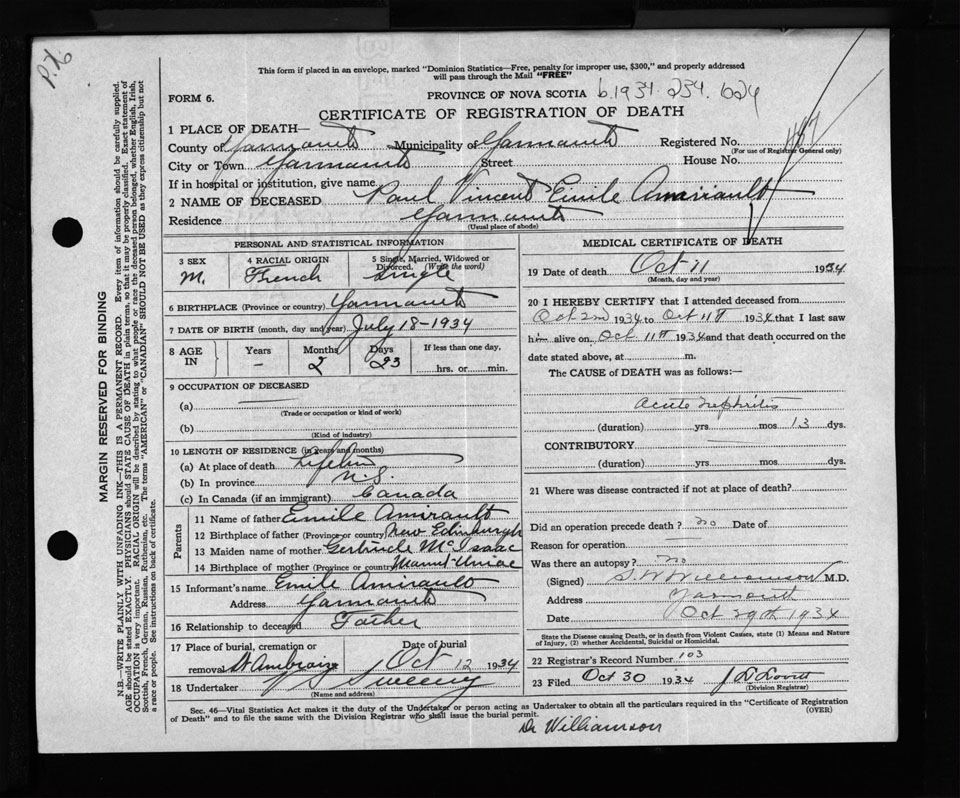 P.X6
This form if placed in an envelope, marked "Dominion Statistics—Free, penalty for improper use, $300," and properly addressed
will pass through the Mail "FREE"
FORM 6.
PROVINCE OF NOVA SCOTIA b.1934. 254. 624
CERTIFICATE OF REGISTRATION OF DEATH
1 PLACE OF DEATH—
County of Yarmouth Municipality of Yarmouth Registered No.
(For use of Registrar General only)
City or Town Yarmouth Street House No.
If in hospital or institution, give name
2 NAME OF DECEASED Paul Vincent Emile Amirault
Residence Yarmouth
(Usual place of abode)
PERSONAL AND STATISTICAL INFORMATION
3 SEX 4 RACIAL ORIGIN 5 Single, Married, Widowed or Divorced. (Write the word)
M. French Single
6 BIRTHPLACE (Province or country) Yarmouth
7 DATE OF BIRTH (month, day and year) July 18-1934
8 AGE IN Years Months Days If less than one day,
– 2 23 hrs. or min.
9 OCCUPATION OF DECEASED
(a)
(Trade or occupation or kind of work)
(b)
(Kind of industry)
10 LENGTH OF RESIDENCE (in years and months)
(a) At place of death Lifetime
(b) In province N.S.
(c) In Canada (if an immigrant) Canada
Parents
11 Name of father Emile Amirault
12 Birthplace of father (Province or country) New Edinburgh
13 Maiden name of mother Gertrude McIsaac
14 Birthplace of mother (Province or country) Mount Uniac
15 Informant's name Emile Amirault
Address Yarmouth
16 Relationship to deceased Father
17 Place of burial, cremation or Date of burial
removal St Ambroise Oct 12 1934
18 Undertaker V S Sweeny
(Name and address)
MEDICAL CERTIFICATE OF DEATH
19 Date of death Oct 11 1934
(Month, day and year)
20 I HEREBY CERTIFY that I attended deceased from
Oct 2nd 1934 to Oct 11th 1934 that I last saw
him alive on Oct 11th 1934 and that death occurred on the
date stated above, at m.
The CAUSE of DEATH was as follows:—
Acute Nephritis
(duration) yrs mos 13 dys.
CONTRIBUTORY
(duration) yrs mos dys.
21 Where was disease contracted if not at place of death?
Did an operation precede death? no Date of
Reason for operation
Was there an autopsy? no
(Signed) S.W. Williamson M.D.
Address Yarmouth
Date Oct 29th 1934
State the Disease causing Death, or in death from Violent Causes, state (1) Means and Nature
of Injury, (2) whether Accidental, Suicidal or Homicidal.
22 Registrar's Record Number 103
23 Filed Oct 30 1934 J D Lovitt
(Division Registrar)
Sec. 46—Vital Statistics Act makes it the duty of the Undertaker or person acting as Undertaker to obtain all the particulars required in the "Certificate of Registration
of Death" and to file the same with the Division Registrar who shall issue the burial permit. (OVER)
Dr Williamson
MARGIN RESERVED FOR BINDING
N.B—WRITE PLAINLY WITH UNFADING INK—THIS IS A PERMANENT RECORD. Every item of information should be carefully supplied.
AGE should be stated EXACTLY. PHYSICIANS should STATE CAUSE OF DEATH in plain terms, so that it may be properly classified. Exact statement of
OCCUPATION is very important. RACIAL ORIGIN will be described by stating to what people or race the deceased person belonged, whether English, Irish,
Scottish, French, German, Russian, Ruthenian, etc. The terms "AMERICAN" or "CANADIAN" SHOULD NOT BE USED as they express citizenship but not
a race or people. See instructions on back of certificate.